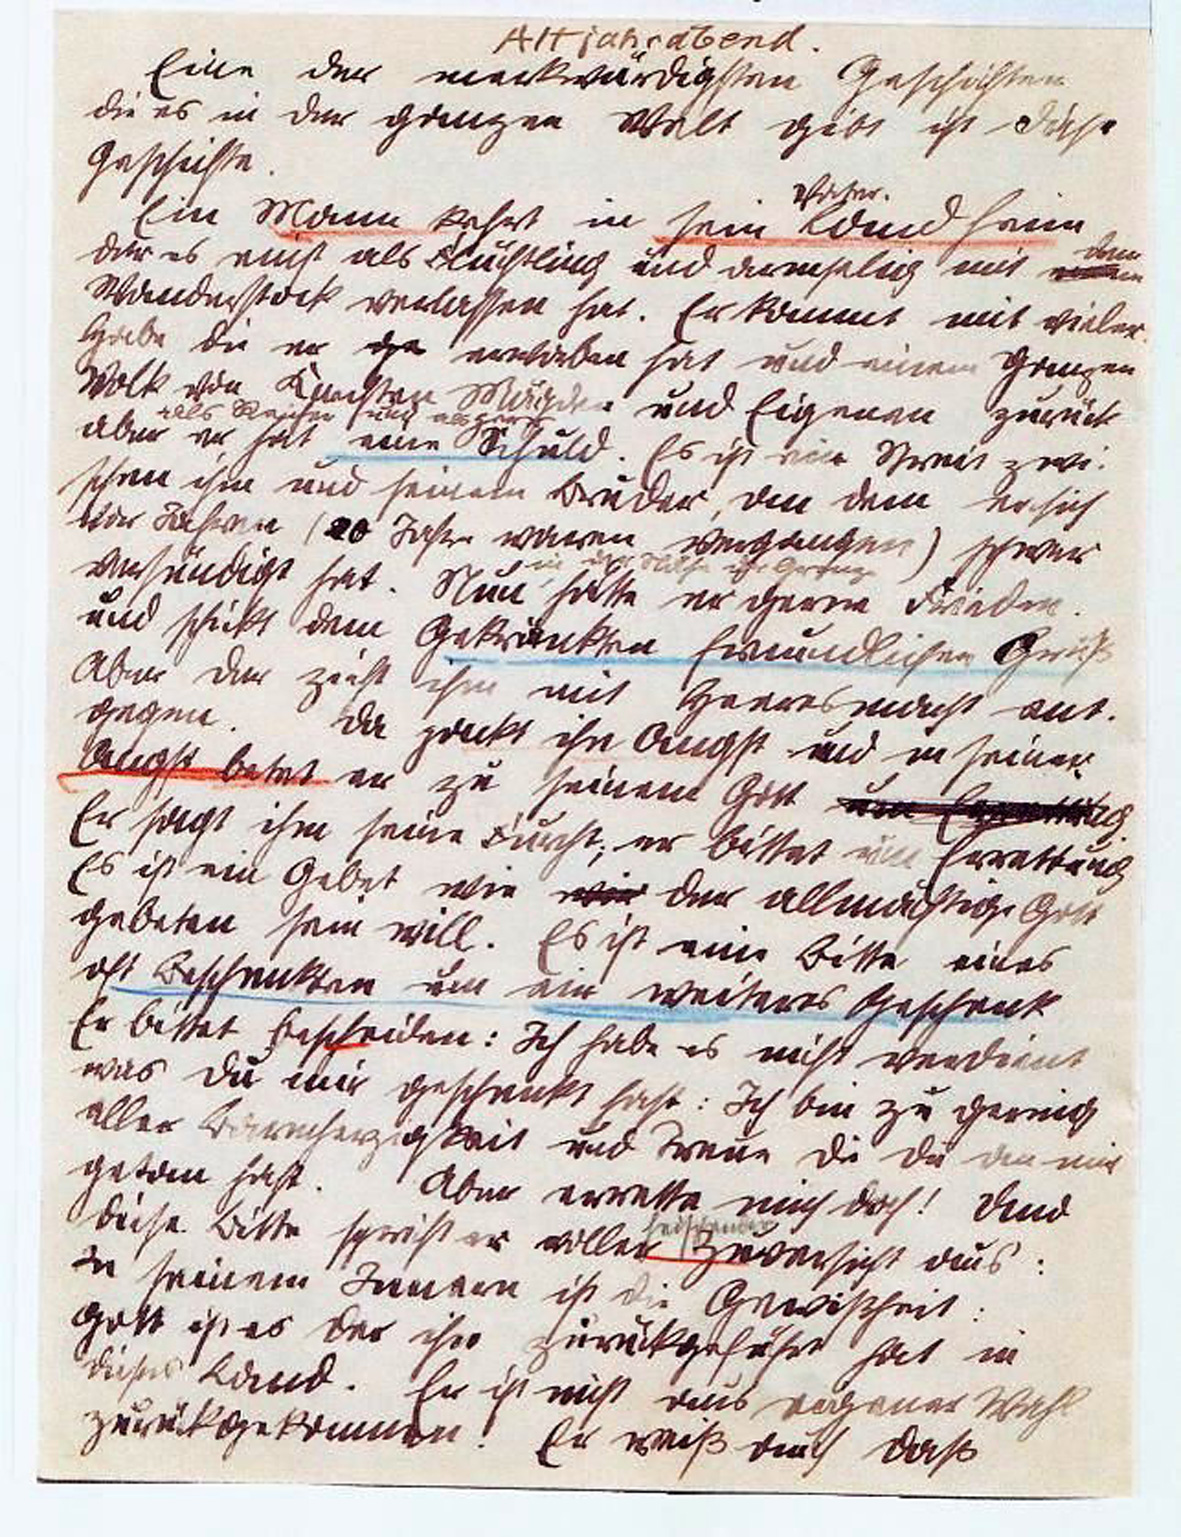 Altjahrabend.
Eine der merkwürdigsten Geschichten
die es in der ganzen Welt gibt ist diese
Geschichte.
Vater.
Ein Mann kehrt in sein Land heim
dem
der es einst als Flüchtling und armselig mit
Wanderstock verlassen hat. Er kommt mit vieler
Habe die er erworben hat und einem ganzen
Volk von Knechten Mägden und Eigenen zurück
als Reicher und
aber er hat eine Schuld. Es ist ein Streit zwi-
schen ihm und seinem Bruder, an dem er sich
vor Jahren (20 Jahre waren vergangen) schwer
in der Nähe der Grenze
versündigt hat. Nun hätte er gerne Frieden.
und schickt dem Gekränkten freundlichen Gruß
Aber der zieht ihm mit Heeresmacht ent-
gegen. Da packt ihn Angst und in seiner
Angst betet er zu seinem Gott
Er sagt ihm seine Furcht; er bittet um Errettung
Es ist ein Gebet wie der allmächtige Gott
gebeten sein will. Es ist eine Bitte eines
oft Beschenkten um ein weiteres Geschenk
Er bittet bescheiden: Ich habe es nicht verdient
was du mir geschenkt hast: Ich bin zu gering
aller Barmherzigkeit und Treue die du an mir
getan hast. Aber errette mich doch! Und
diese Bitte spricht er voller Zuversicht aus:
In seinem Innern ist die Gewißheit:
Gott ist es der ihn zurückgeführt hat in
dieses Land. Er ist nicht aus eigener Wahl
zurückgekommen! Er weiß auch daß